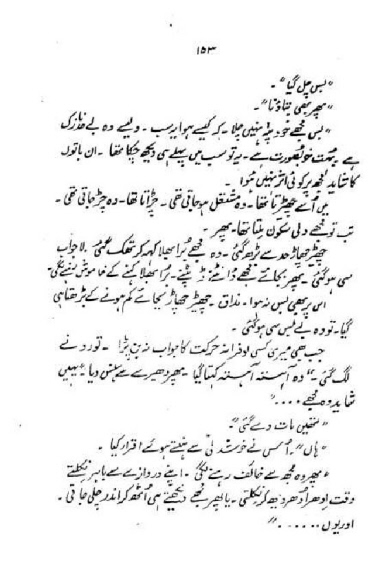 ۱۵۳
"بس چل گیا"۔
"پھر بھی بتاؤنا"۔
"بس مجھے خود پتہ نہیں چلا۔ کہ کیسے ہوا یہ سب۔ ویسے وہ بے حد نازک
ہے۔ بہت خوبصورت ہے۔ یہ تو سب میں پہلے ہی دیکھ چکا تھا۔ ان باتوں
کا شاید مجھ پر کوئی اثر نہیں ہوا
میں اُسے چھیڑتا تھا۔ وہ مشتعل ہو جاتی تھی۔ چڑاتا تھا۔ وہ چڑ جاتی تھی۔
تب تو مجھے دلی سکون ملتا تھا۔ پھر۔
چھیڑ چھاڑ حد سے بڑھ گئی۔ وہ مجھے بُرا بھلا کہہ کر تھک گئی لاجواب
سی ہو گئی۔ پھر بجائے مجھے ڈانٹنے ڈپٹنے۔ بُرا بھلا کہنے کے خاموش رہنے لگی۔
اس پر بھی بس نہ ہوا۔ مذاق۔ چھیڑ چھاڑ بجائے کم ہونے کے بڑھتا ہی
گیا۔ تو وہ بے بس سی ہو گئی۔
جب بھی میری کسی اوفرانہ حرکت کا جواب نہ بن پڑا۔ تو رو نے
لگ گئی۔ "وہ آہستہ آہستہ کہتا گیا۔ پھر دھیرے سے ہنس دیا۔ "یہیں
شاید وہ مجھے...."
"تمہیں مات دے گئی"۔
"ہاں"۔ اُس نے خوشدلی سے ہنستے ہوئے اقرار کیا۔
"پھر وہ مجھ سے خائف رہنے لگی۔ اپنے دروازے سے باہر نکلتے
وقت اِدھر اُدھر دیکھ کر نکلتی۔ یا پھر مجھے دیکھتے ہی اُٹھ کر اندر چلی جاتی۔
اور یوں......"